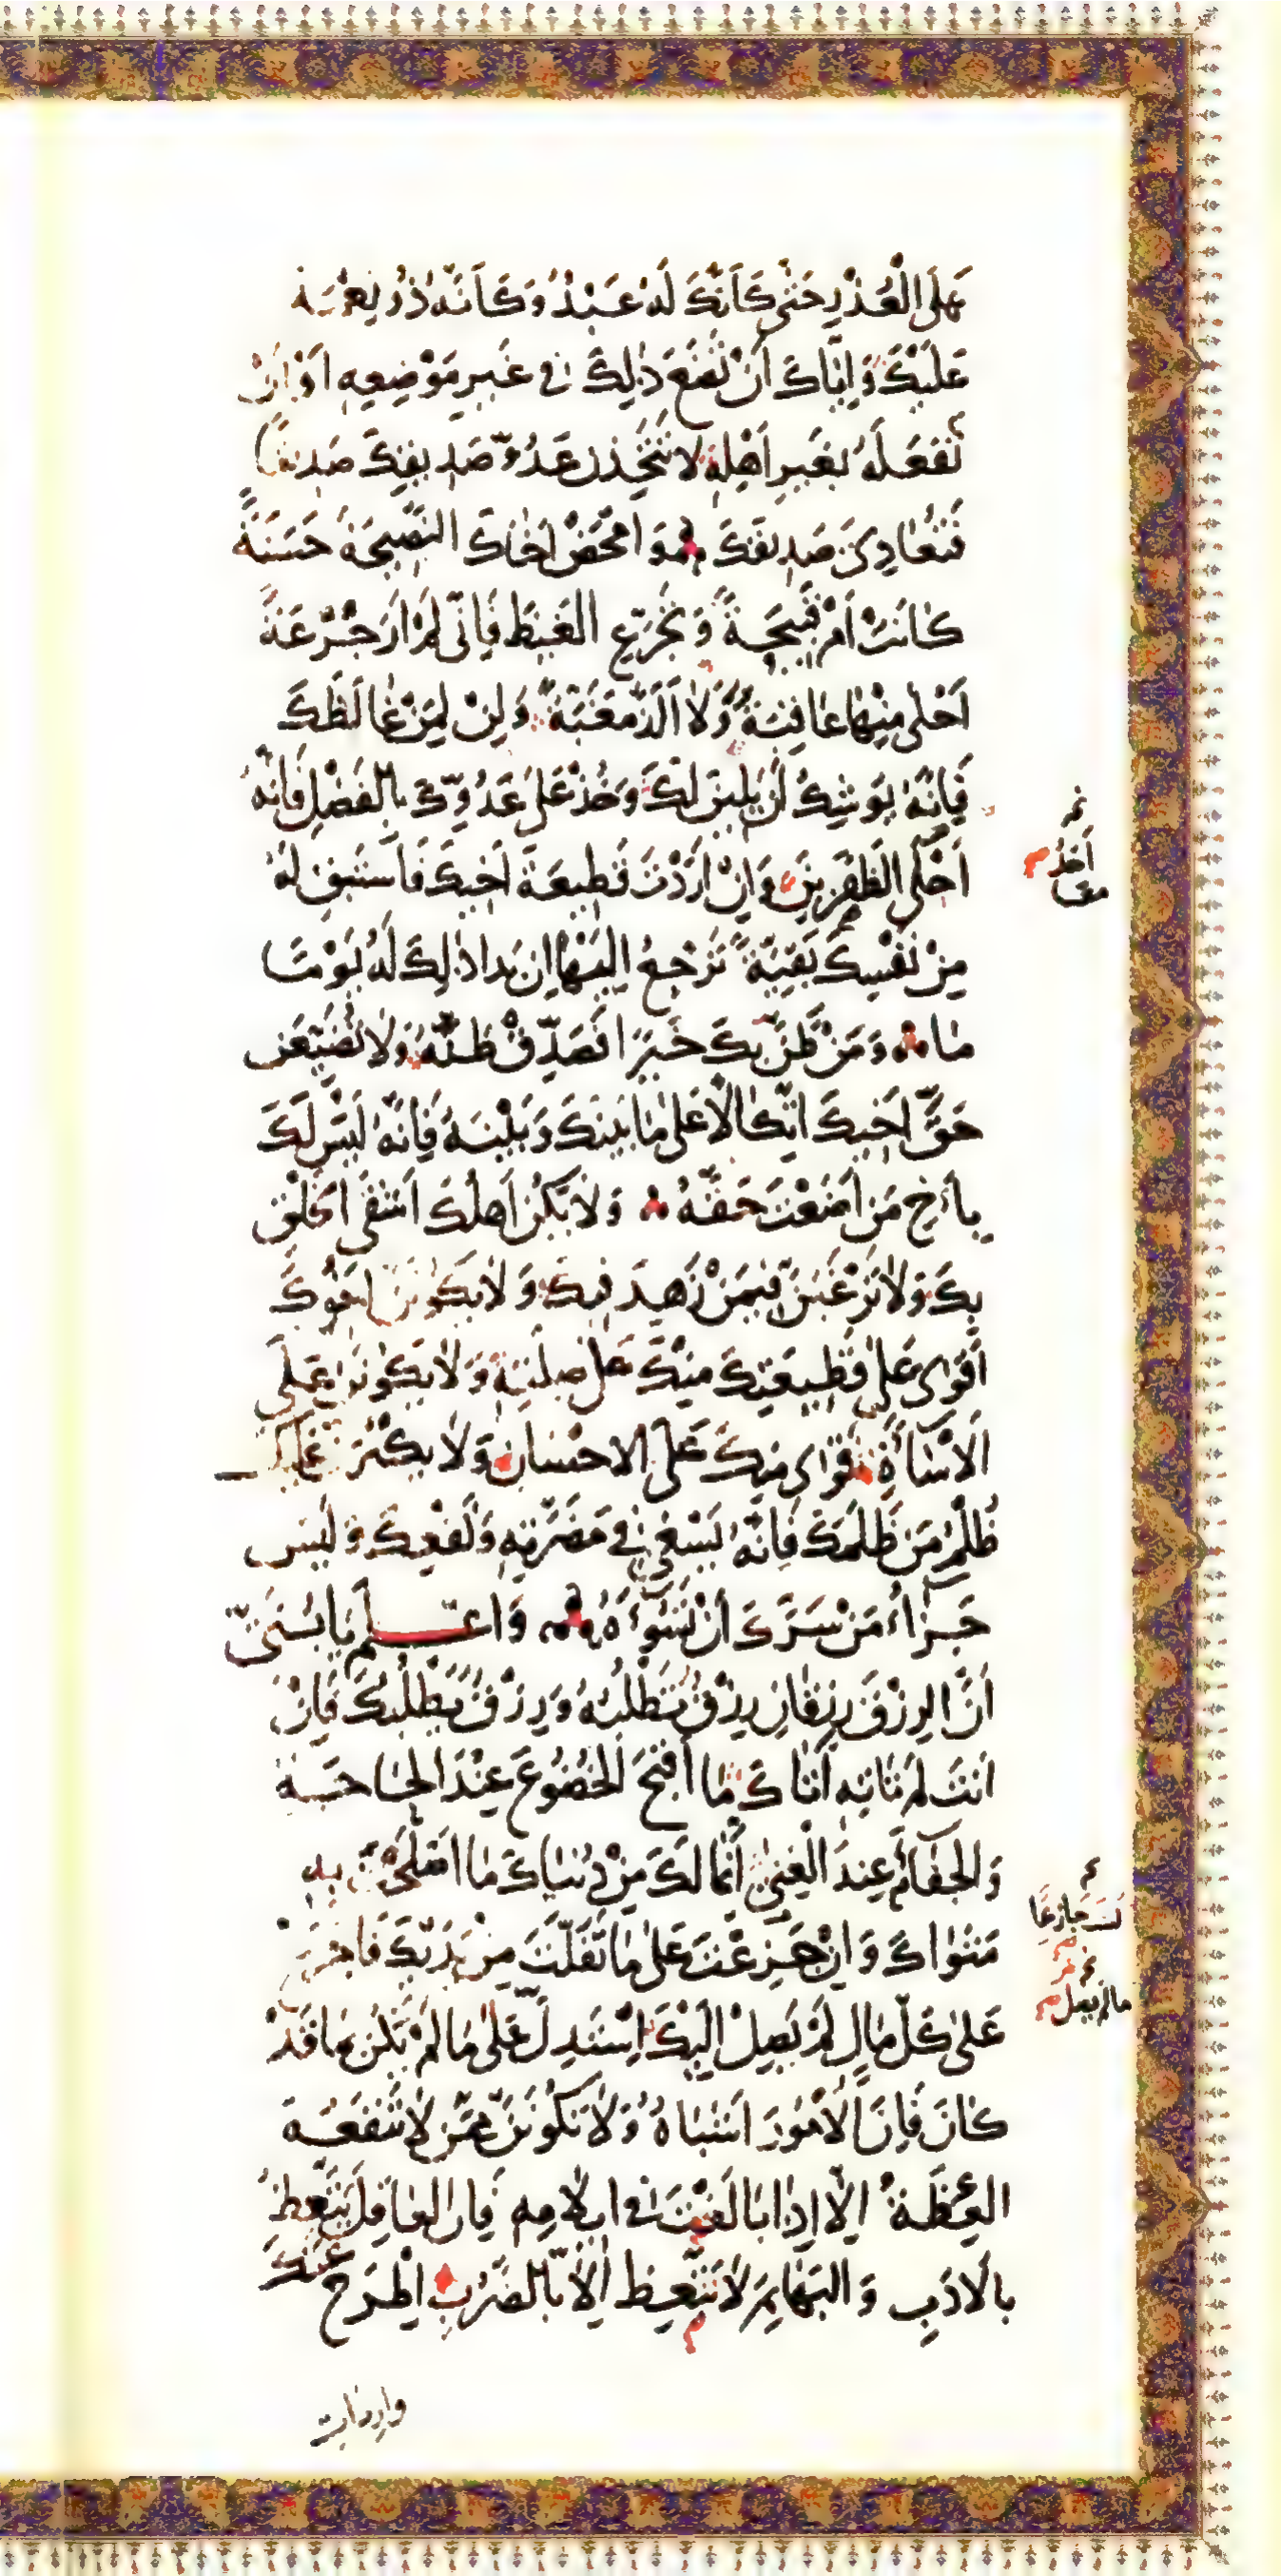 عَلَى الْعُذْرِ حَتّٰى كَاَنَّكَ لَهُ عَبْدٌ وَ كَاَنَّهُ ذُو نِعْمَةٍ
عَلَيْكَ وَ اِيَّاكَ اَنْ تَضَعَ ذٰلِكَ فى غَيْرِ مَوْضِعِهِ اَوْ اَنْ
تَفْعَلَهُ بِغَيْرِ اَهْلِهِ لا تَتَّخِذَنَّ عَدُوَّ صَديقِكَ صَديقًا
فَتُعَادِىَ صَديقَكَ وَ امْحَضْ اَخَاكَ النَّصيحَةَ حَسَنَةً
كَانَتْ اَمْ قَبيحَةً وَ تَجَرَّعِ الْغَيْظَ فَاِنّى لَمْ اَرَ جُرْعَةً
اَحْلٰى مِنْهَا عَاقِبَةً وَ لَا اَلَذَّ مَغَبَّةً وَ لِنْ لِمَنْ غَالَظَكَ
فَاِنَّهُ يُوشِكُ اَنْ يَلينَ لَكَ وَ خُذْ عَلٰى عَدُوِّكَ بِالْفَضْلِ فَاِنَّهُ
اَحْلَى الظَّفَرَيْنِ وَ اِنْ اَرَدْتَ قَطيعَةَ اَخيكَ فَاسْتَبْقِ لَهُ
مِنْ نَفْسِكَ بَقِيَّةً تَرْجِعُ اِلَيْهَا اِنْ بَدَا ذٰلِكَ لَهُ يَوْمًا
مَا وَ مَنْ ظَنَّ بِكَ خَيْرًا فَصَدِّقْ ظَنَّهُ وَ لَا تُضَيِّعَنَّ
حَقَّ اَخيكَ اتِّكَالًا عَلٰى مَا بَيْنَكَ وَ بَيْنَهُ فَاِنَّهُ لَيْسَ لَكَ
بِاَخٍ مَنْ اَضَعْتَ حَقَّهُ وَ لَا يَكُنْ اَهْلُكَ اَشْقَى الْخَلْقِ
بِكَ وَ لَا تَرْغَبَنَّ فيمَنْ زَهِدَ فيكَ وَ لَا يَكُونَنَّ اَخُوكَ
اَقْوٰى عَلٰى قَطيعَتِكَ مِنْكَ عَلٰى صِلَتِهِ وَ لَا يَكُونَنَّ عَلَى
الْاِسَاءَةِ اَقْوٰى مِنْكَ عَلَى الْاِحْسَانِ وَ لَا يَكْبُرَنَّ عَلَيْكَ
ظُلْمُ مَنْ ظَلَمَكَ فَاِنَّهُ يَسْعٰى فى مَضَرَّتِهِ وَ نَفْعِكَ وَ لَيْسَ
جَزَاءُ مَنْ سَرَّكَ اَنْ تَسُوءَهُ وَ اعْلَمْ يَا بُنَىَّ
اَنَّ الرِّزْقَ رِزْقَانِ رِزْقٌ تَطْلُبُهُ وَ رِزْقٌ يَطْلُبُكَ فَاِنْ
اَنْتَ لَمْ تَاْتِهِ اَتَاكَ مَا اَقْبَحَ الْخُضُوعَ عِنْدَ الْحَاجَةِ
وَ الْجَفَاءَ عِنْدَ الْغِنٰى اِنَّمَا لَكَ مِنْ دُنْيَاكَ مَا اَصْلَحْتَ بِهِ
مَثْوَاكَ وَ اِنْ جَزِعْتَ عَلٰى مَا تَفَلَّتَ مِنْ يَدَيْكَ فَاجْزَعْ
عَلٰى كُلِّ مَالٍ لَمْ يَصِلْ اِلَيْكَ اِسْتَدِلَّ عَلٰى مَا لَمْ يَكُنْ بِمَا قَدْ
كَانَ فَاِنَّ الْاُمُورَ اَشْبَاهٌ وَ لَا تَكُونَنَّ مِمَّنْ لَا تَنْفَعُهُ
الْعِظَةُ اِلَّا اِذَا بَالَغْتَ فى ايلَامِهِ فَاِنَّ الْعَاقِلَ يَتَّعِظُ
بِالْاَدَبِ وَ الْبَهَائِمَ لَا تَتَّعِظُ اِلَّا بِالضَّرْبِ اِطْرَحْ عَنْكَ
وارِدَاتِ
اَحَدُ
جازِعًا
مالم يصل